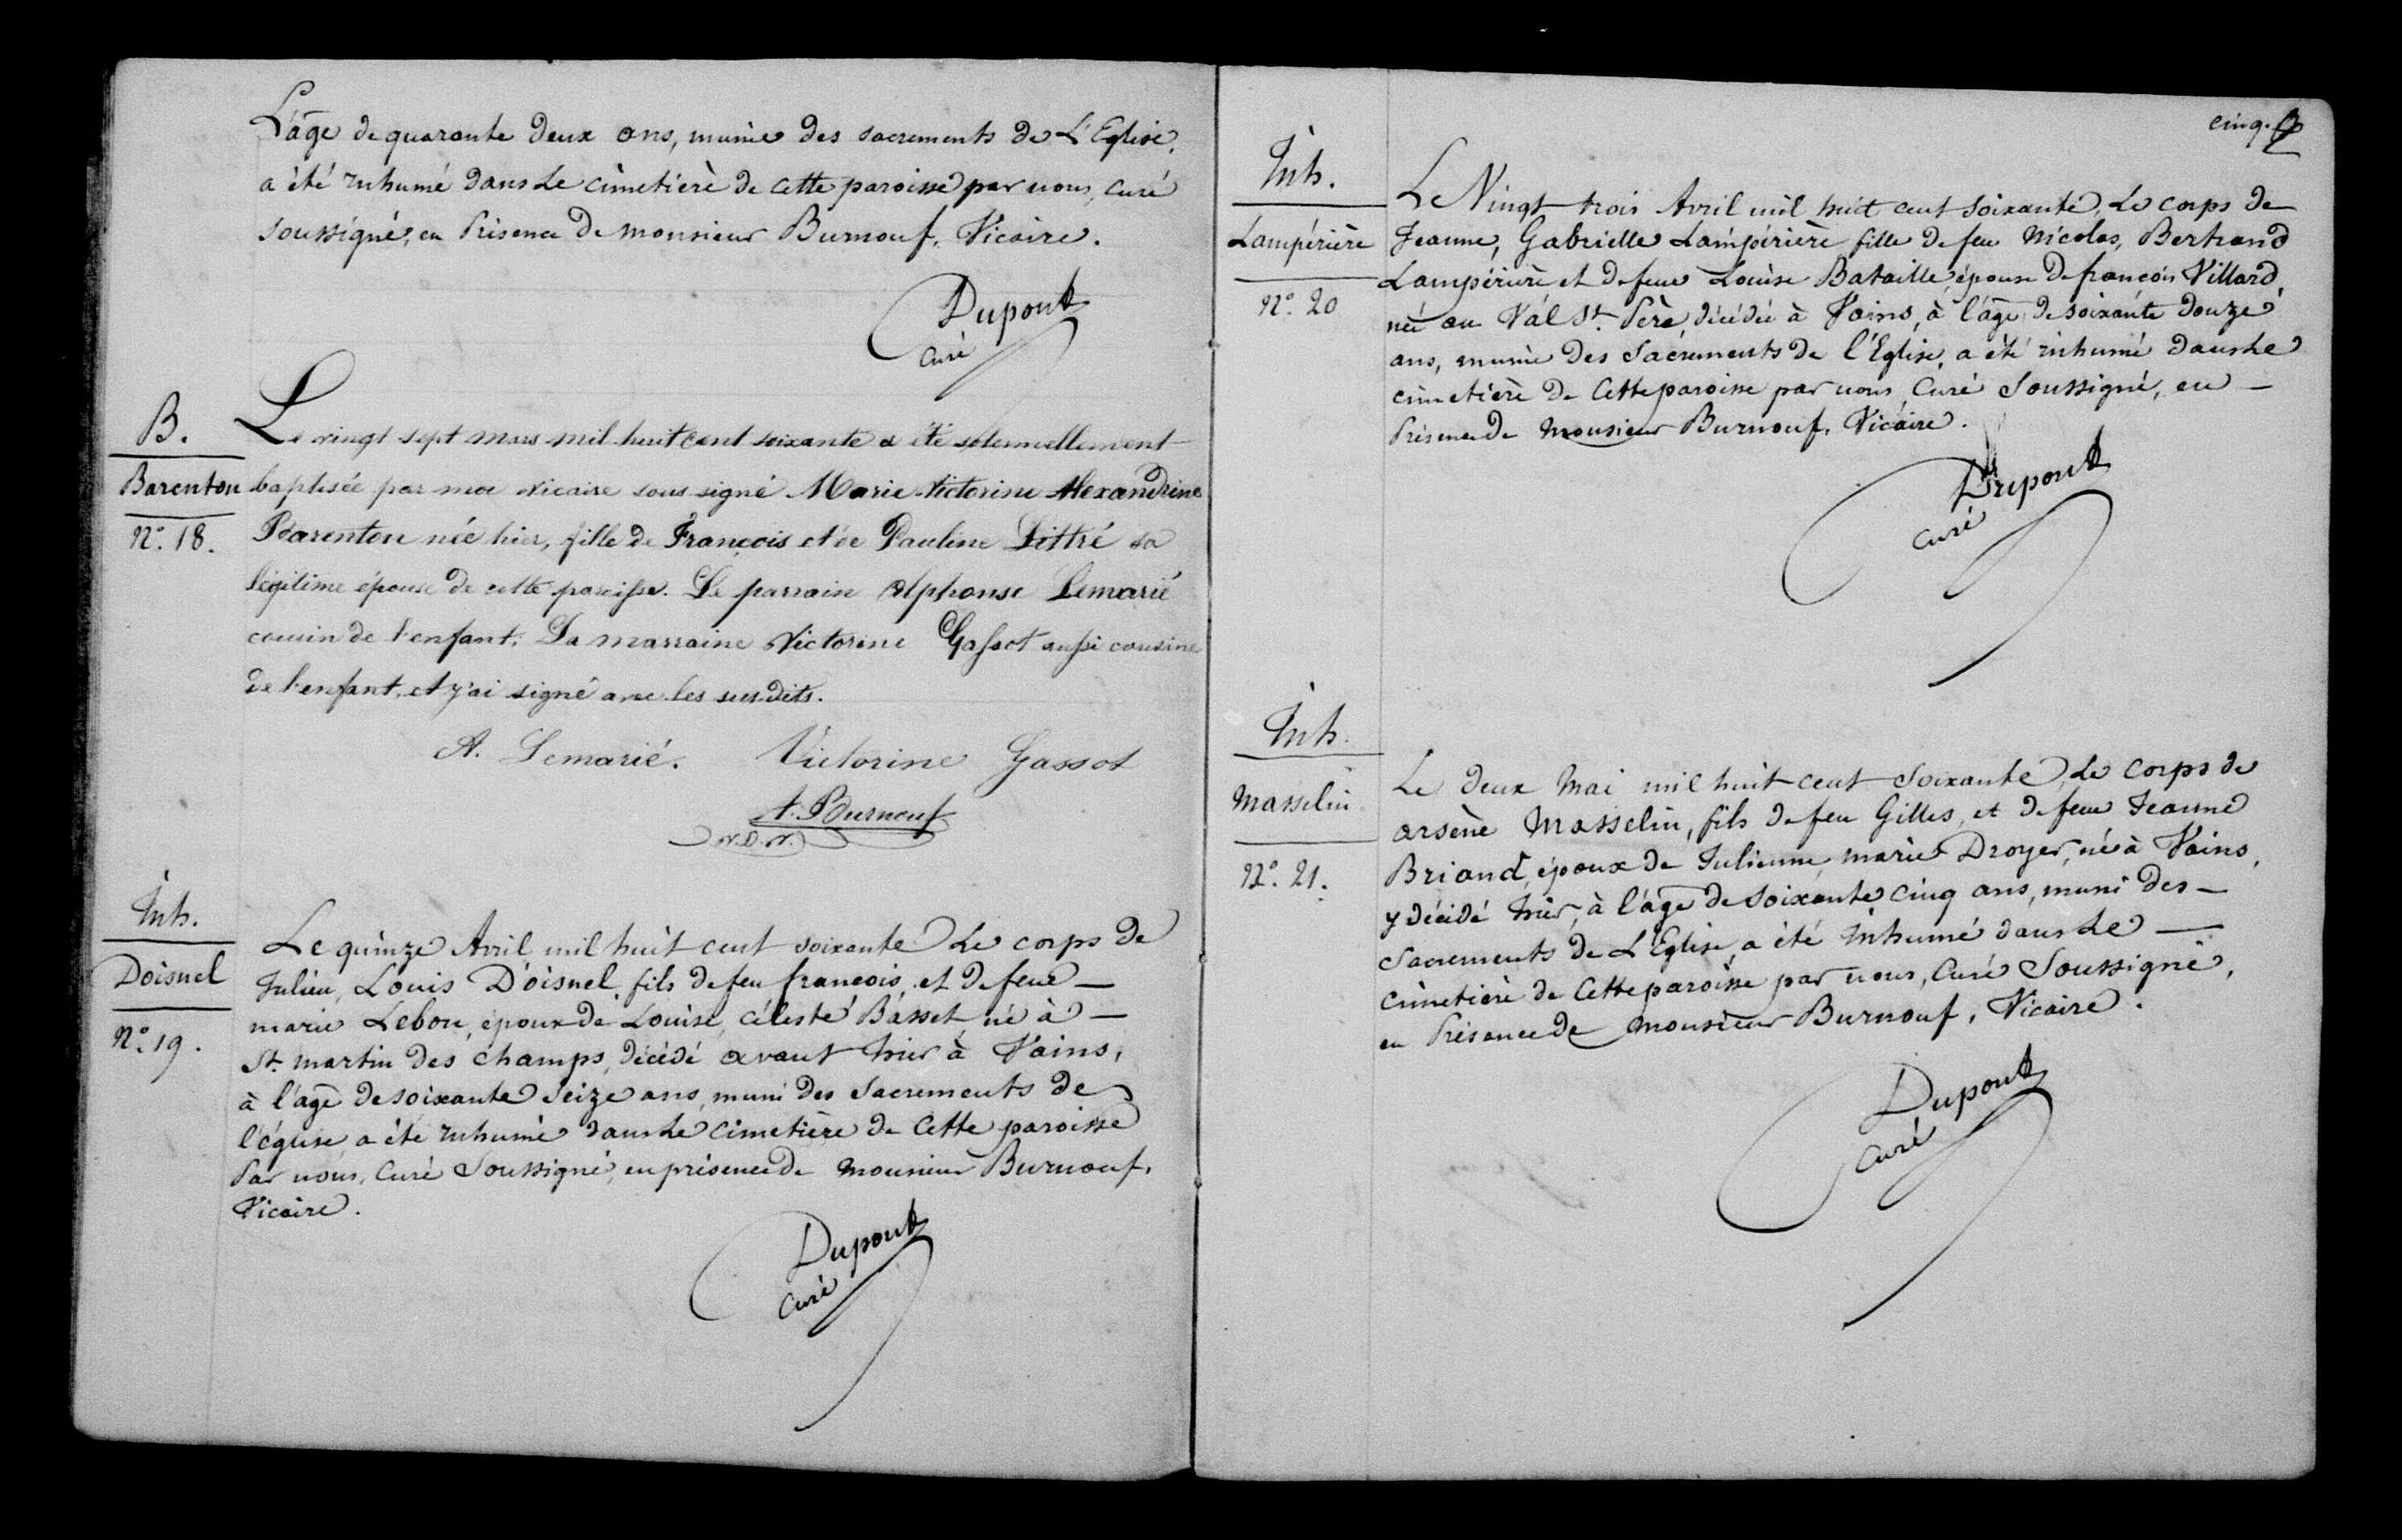 L'âge de quarante deux ans, munie des sacrements de L'Eglise,
a été inhumé dans Le cimetière de cette paroisse par nous, curé
soussigné, en Présence de monsieur Burnouf, Vicaire.
Dupont
curé
B.
Barenton
N.º 18.
Le vingt sept mars mil huit cent soixante a été solennellement
baptisée par moi vicaire sous signé Marie Victorine Alexandrine
Barenton née hier, fille de François et de Pauline Littré sa
légitime épouse de cette paroisse. Le parrain Alphonse Lemarié
cousin de l'enfant. La marraine Victorine Gassot aussi cousine
de l'enfant, et j'ai signé avec les susdits.
A. Lemarié. Victorine Gassot
A. Burnouf
v.d.v.
Inh.
Doisnel
N.º 19.
Le quinze Avril mil huit cent soixante Le corps de
Julien, Louis Doisnel, fils de feu françois, et de feue
marie Lebon, époux de Louise, céleste Basset, né à
St. martin des champs, décédé avant hier à Vains,
à l'âge de soixante seize ans, muni des Sacrements de
l'église, a été inhumé dans Le cimetière de Cette paroisse
Par nous, Curé Soussigné, en présence de monsieur Burnouf,
Vicaire.
Dupont
curé
cinq.
Inh.
Lampérière
N.º 20
Le Vingt trois Avril mil huit cent soixante, Le corps de
Jeanne, Gabrielle Lampérière fille de feu Nicolas, Bertrand
Lampérière et de feue Louise Bataille, épouse de françois Villard,
née au Val St. Père, décédée à Vains, à l'âge de soixante douze
ans, munie des Sacrements de l'Eglise, a été inhumé dans Le
cimetière de Cette paroisse par nous Curé Soussigné, en
Présence de Monsieur Burnouf, Vicaire.
Dupont
curé
Inh.
Masselin
N.º 21.
Le deux Mai mil huit cent soixante, Le corps de
arsène Masselin, fils de feu Gilles, et de feue Jeanne
Briand, époux de Julienne, marie Droyer, né à Vains,
y décédé hier, à l'âge de soixante cinq ans, muni des
Sacrements de L'Eglise, a été inhumé dans Le
cimetière de Cette paroisse par nous, Curé Soussigné,
en Présence de monsieur Burnouf, Vicaire.
Dupont
Curé